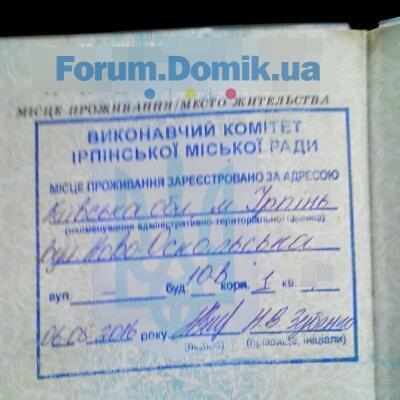 Forum.Domik.ua
МІСЦЕ ПРОЖИВАННЯ/МЕСТО ЖИТЕЛЬСТВА
ВИКОНАВЧИЙ КОМІТЕТ
ІРПІНСЬКОЇ МІСЬКОЇ РАДИ
МІСЦЕ ПРОЖИВАННЯ ЗАРЕЄСТРОВАНО ЗА АДРЕСОЮ
Київська обл, м. Ірпінь
(найменування адміністративно-територіальної одиниці)
вул Ново-Оскольська
вул. буд. 10-В корп. 1 кв.
06.05.2016 року Н.В. Зубенко
(підпис) (прізвище, ініціали)